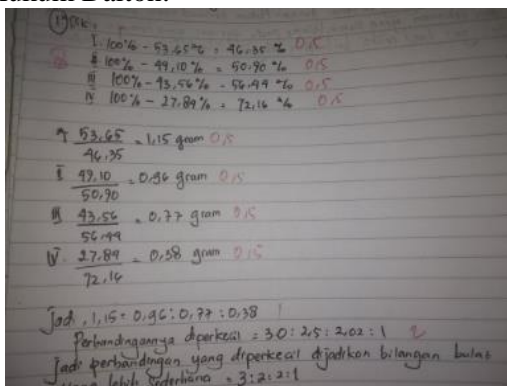 Hukum Dalton.
I. 100% - 53,65% = 46,35 % 0,5
II 100% - 49,10% = 50,90 % 0,5
III 100% - 43,56% = 56,44 % 0,5
IV 100% - 27,84% = 72,16 % 0,5
I 53,65 = 1,15 gram 0,5
46,35
II 49,10 = 0,96 gram 0,5
50,90
III 43,56 = 0,77 gram 0,5
56,44
IV. 27,84 = 0,38 gram 0,5
72,16
Jadi, 1,15 : 0,96 : 0,77 : 0,38 1
Perbandingannya diperkecil = 3,0 : 2,5 : 2,02 : 1 2
Jadi perbandingan yang diperkecil dijadikan bilangan bulat
yang lebih sederhana = 3:2:2:1